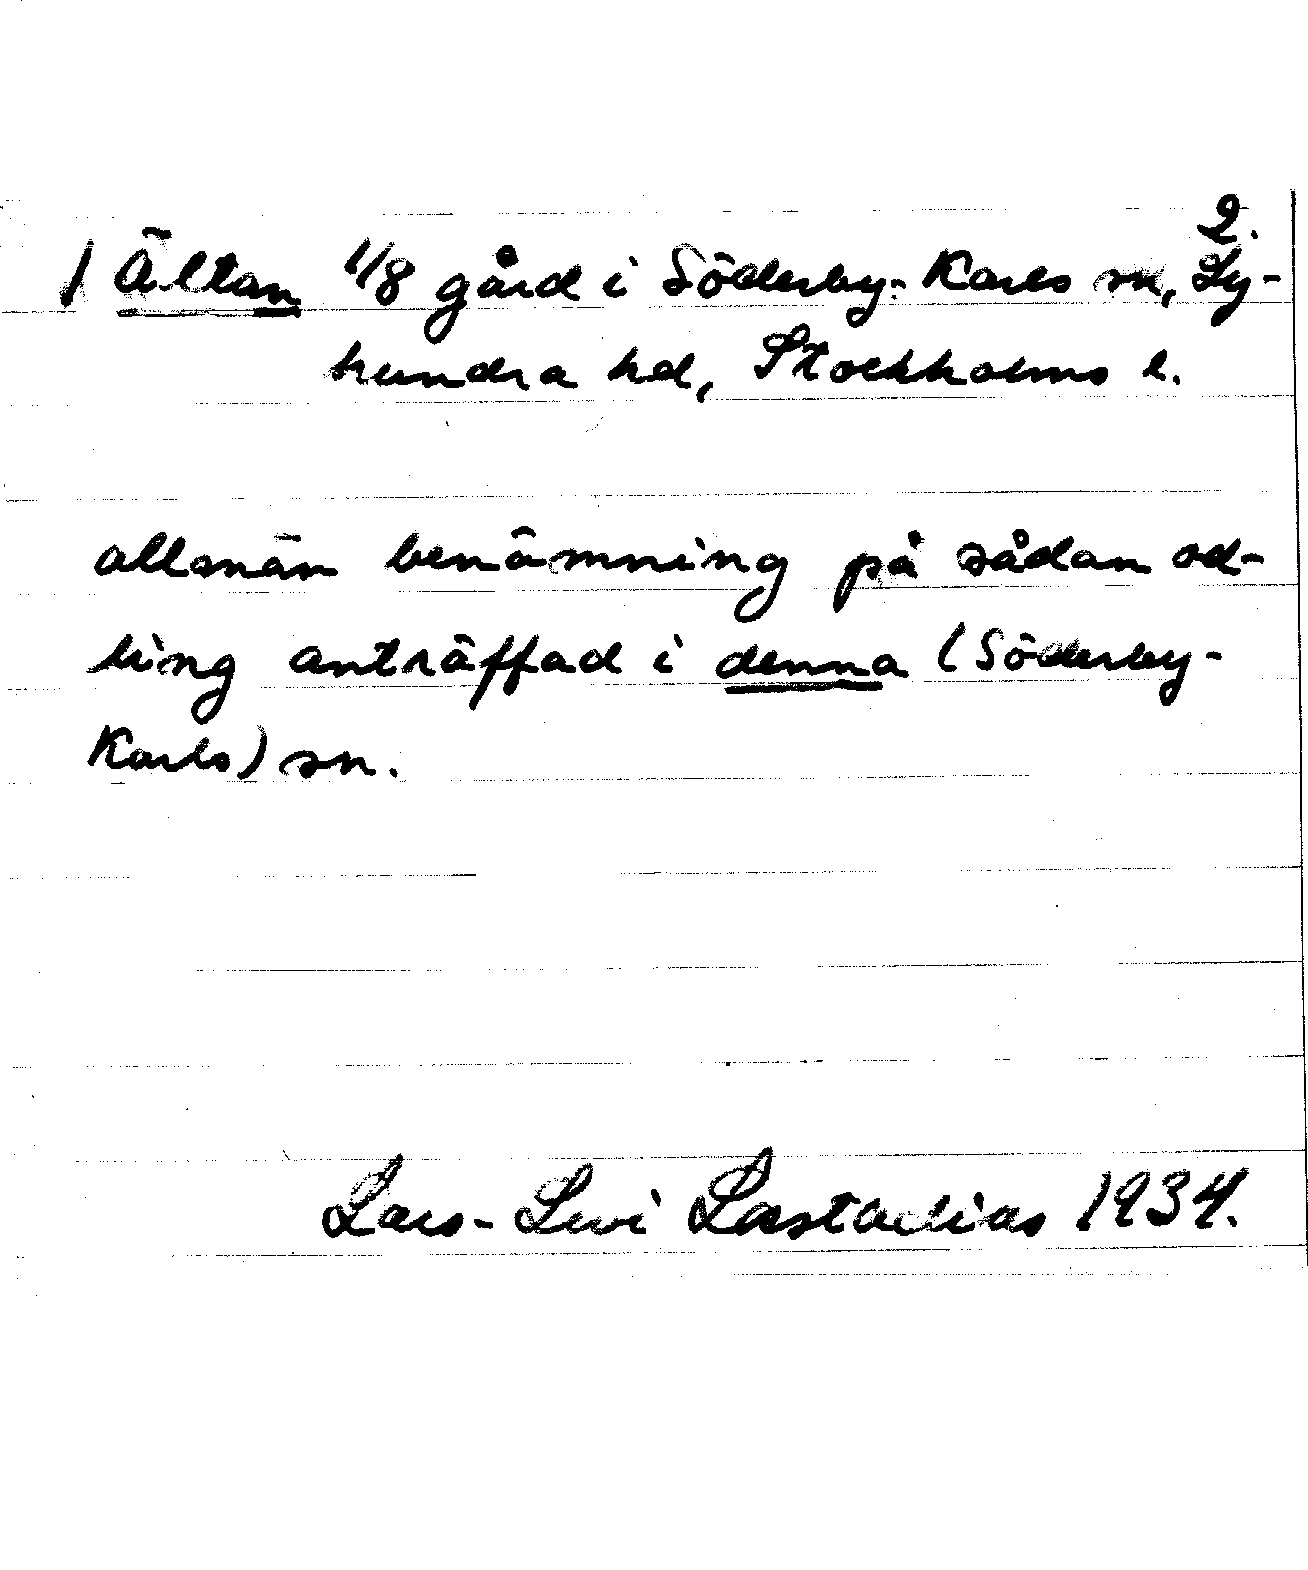 2.
/ Ältan 1/8 gård i Söderby-Karls sn, Ly-
hundra hd, Stockholms l.
allmän benämning på sådan od-
ling anträffad i denna (Söderby-
Karls) sn.
Lars-Levi Læstadius 1934.